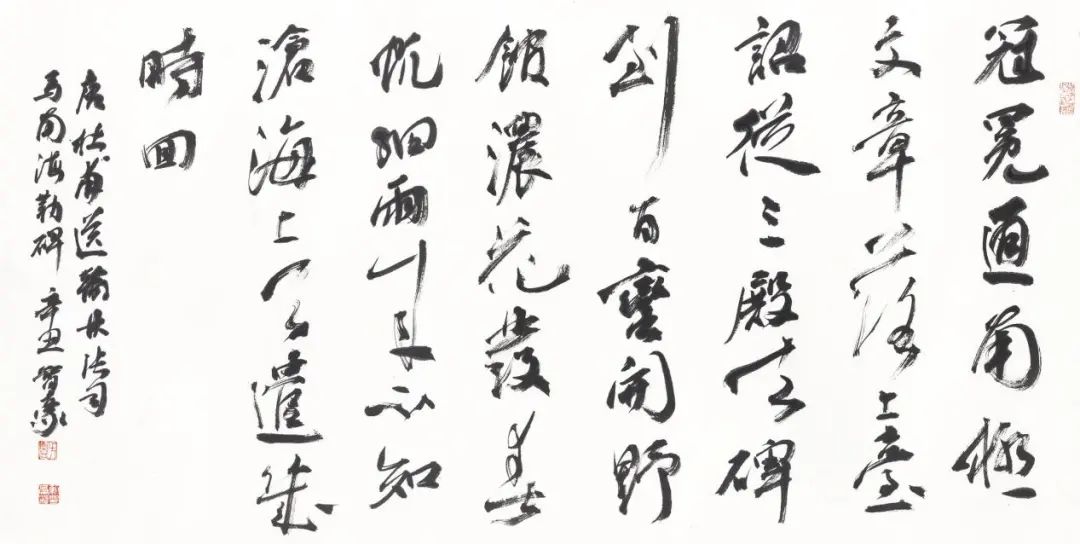 冠冕通南極
文章落上臺
詔從三殿去碑
到百蠻開野
館濃花發春
帆細雨来不知
滄海上天遣幾
時回
唐杜甫送翰林张司
马南海勒碑 辛丑